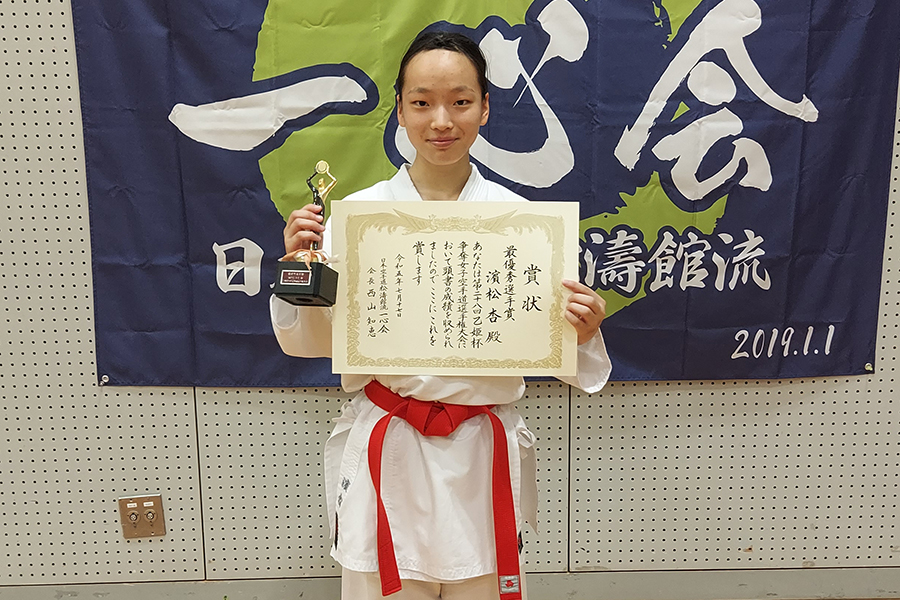 一心会
日
濤館流
2019.1.1
賞状
最優秀選手賞
濱松杏殿
あなたは第二十一回乙姫杯
争奪女子空手道選手権大会に
おいて頭書の成績を収められ
ましたのでここにこれを
賞します
令和五年七月十七日
日本空手道松濤館流一心会
会長 西山知恵